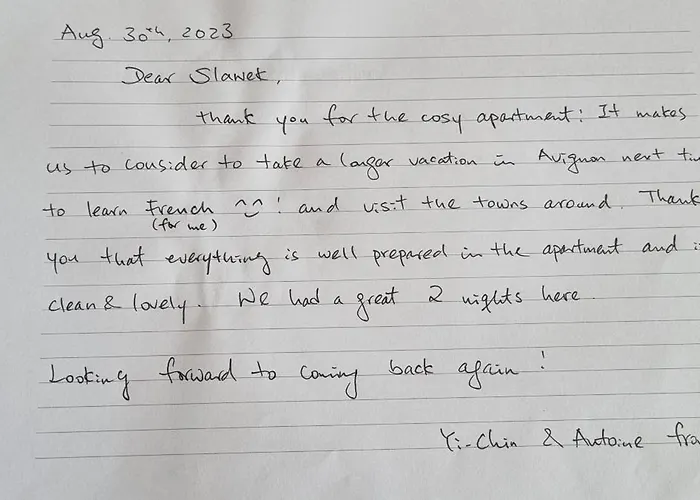 Aug. 30th, 2023
Dear Slawek,
thank you for the cosy apartment! It makes
us to consider to take a longer vacation in Avignon next
to learn French ^‿^ ! and visit the towns around. Thank
(for me)
you that everything is well prepared in the apartment and
clean & lovely. We had a great 2 nights here.
Looking forward to coming back again!
Yi-Chin & Antoine